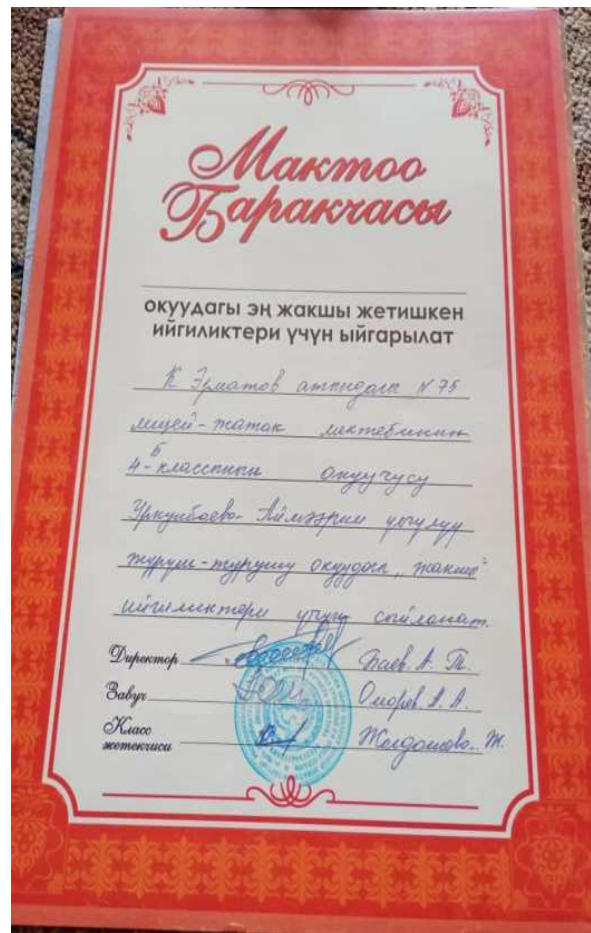 Мактоо
Баракчасы
окуудагы эң жакшы жетишкен
ийгиликтери үчүн ыйгарылат
К Эрматов атындагы N 75
лицей-жатак мектебинин
4-Б классынын окуучусу
Уркунбаева Аймээрим үлгүлүү
жүрүш-турушу окуудагы „жакшы"
ийгиликтери үчүн сыйланат.
Директор Баев. А. Т.
Завуч Оморов. А. А.
Класс
жетекчиси Жолдошева. Ж.